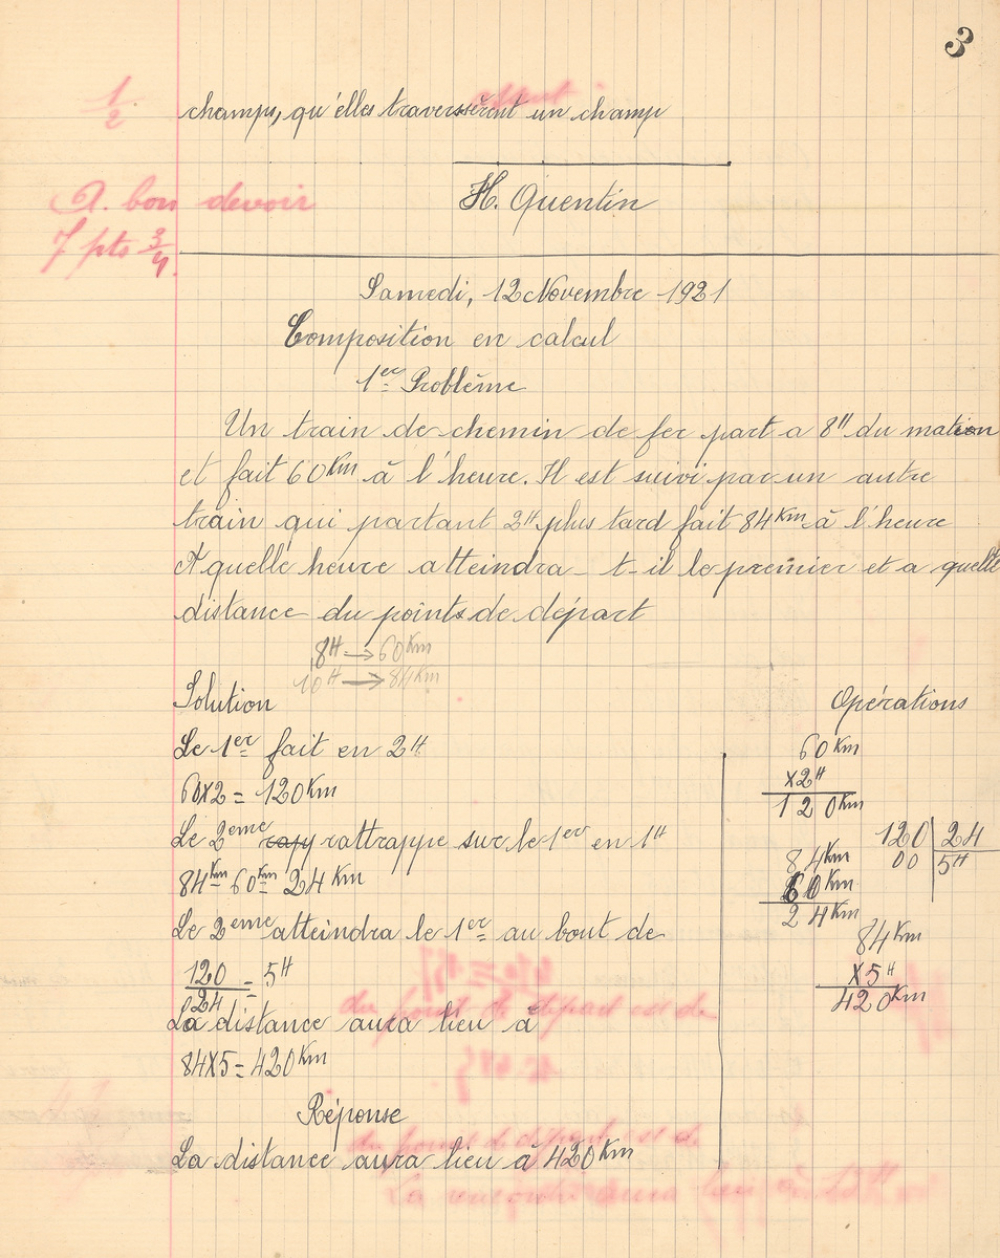 3
1/2 champs, qu'elles traversèrent un champ
A. bon devoir H. Quentin
7 pts 3/4
Samedi, 12 Novembre 1921
Composition en calcul
1er Problème
Un train de chemin de fer part a 8H du mation
et fait 60Km à l'heure. Il est suivi par un autre
train qui partant 2H plus tard fait 84Km à l'heure
A quelle heure atteindra-t-il le premier et a quelle
distance du points de départ
8H → 60Km
10H → 84Km
Solution
Le 1er fait en 2H
60x2 = 120Km
Le 2eme rattrappe sur le 1er en 1H
84Km 60Km 24Km
Le 2eme atteindra le 1er au bout de
120/24 = 5H
du point de départ est de
La distance aura lieu à
84x5 = 420Km
Réponse
du point de départ est de
La distance aura lieu à 420Km
La rencontre aura lieu à
Opérations
60Km
x2H
120Km
84Km
60Km
24Km
120 24
00 5H
84Km
x5H
420Km